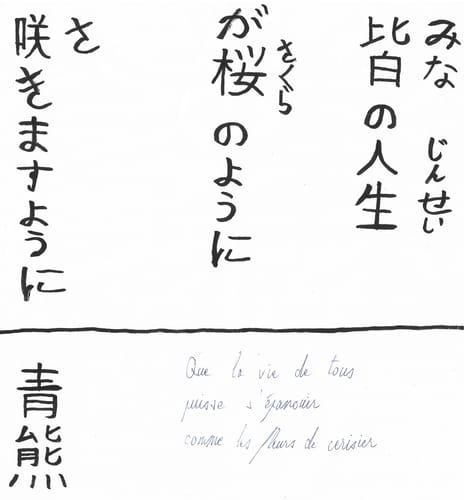 みな じんせい
皆の人生
さくら
が桜のように
さ
咲きますように
青熊
Que la vie de tous
puisse s'épanouir
comme les fleurs de cerisier